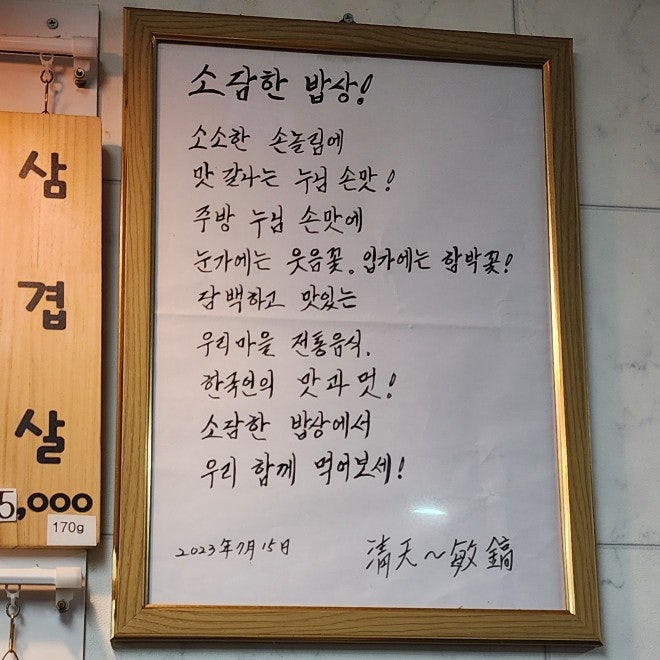 삼겹살
5,000
170g
소담한 밥상!
소소한 손놀림에
맛 갈나는 누님 손맛!
주방 누님 손맛에
눈가에는 웃음꽃. 입가에는 함박꽃!
담백하고 맛있는
우리마을 전통음식.
한국인의 맛과 멋!
소담한 밥상에서
우리 함께 먹어보세!
2023年 7月 15日
淸天~敏鎬